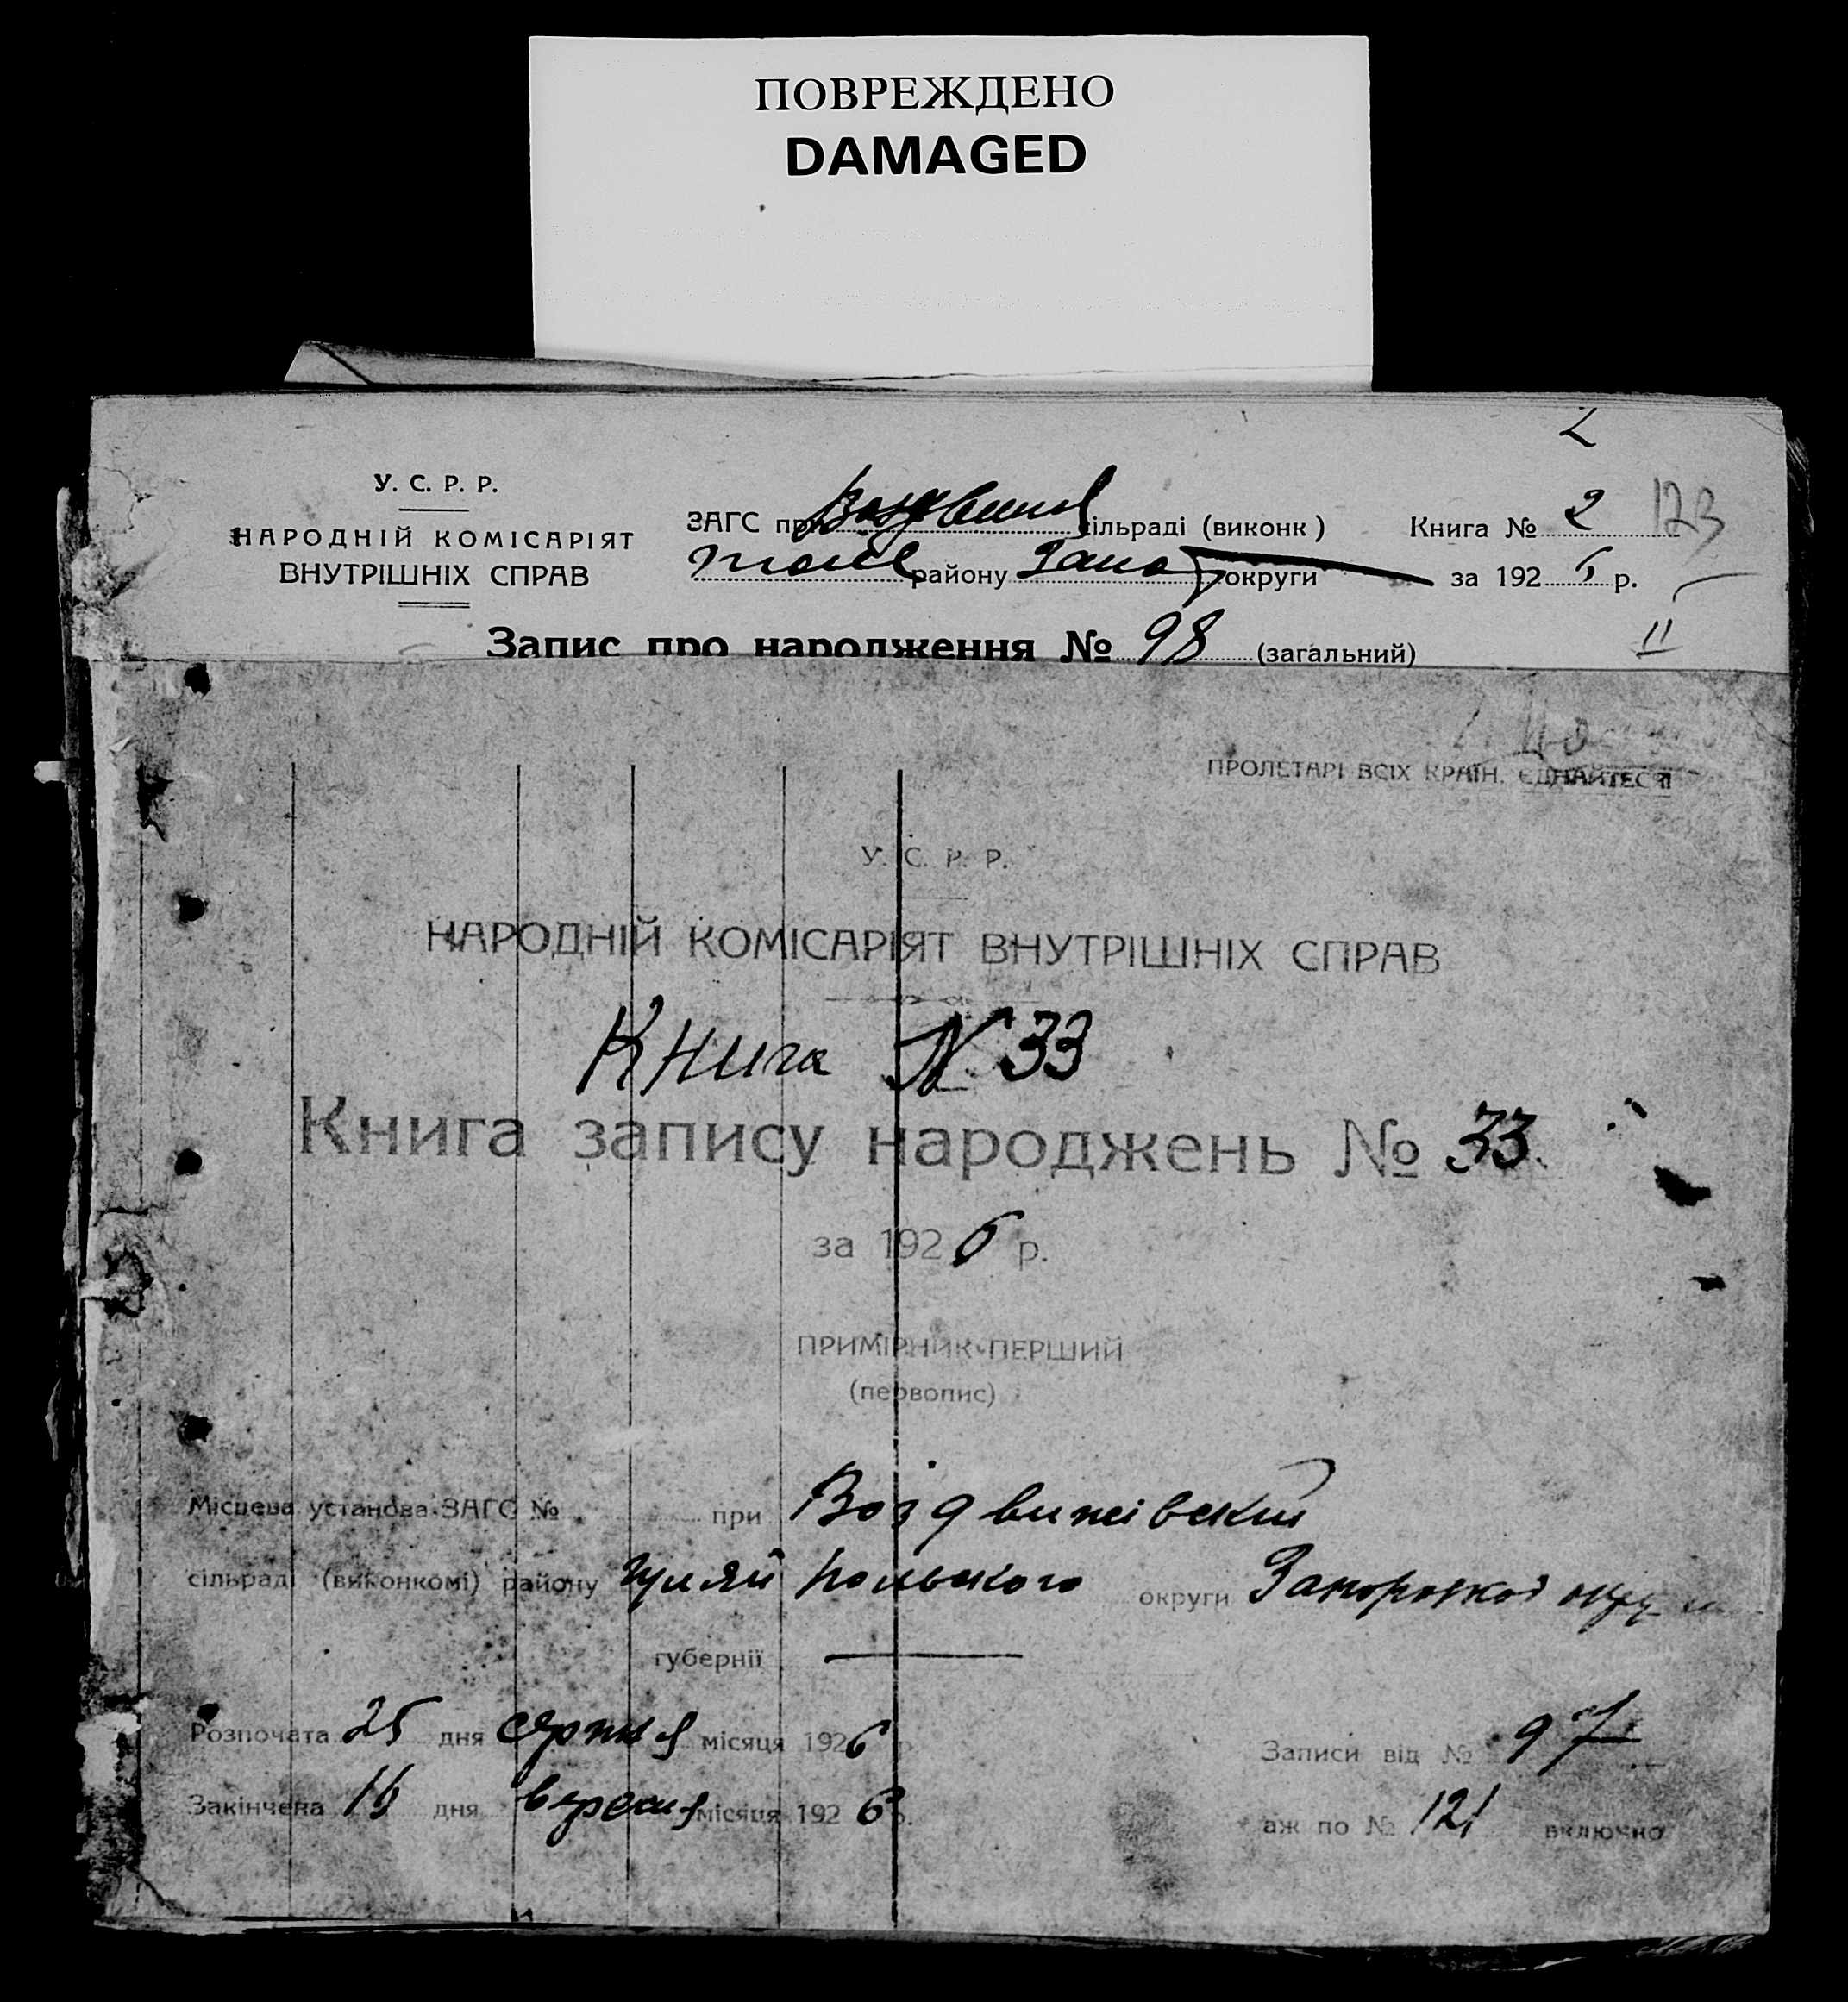 ПОВРЕЖДЕНО
DAMAGED
2
У. С. Р. Р.
НАРОДНІЙ КОМІСАРІЯТ
ВНУТРІШНІХ СПРАВ
ЗАГС при сільраді (виконк) Книга № 2 123
району Запо округи за 1926 р.
Запис про народження № 98 (загальний) 11
ПРОЛЕТАРІ ВСІХ КРАЇН, ЄДНАЙТЕСЯ
У. С. Р. Р.
НАРОДНІЙ КОМІСАРІЯТ ВНУТРІШНІХ СПРАВ
Книга № 33
Книга запису народжень № 33.
за 1926 р.
ПРИМІРНИК ПЕРШИЙ
(первопис)
Місцева установа ЗАГС № при Воздвижівский
сільраді (виконкомі) району Гуляй Польского округи Запорозкоі
губернії —
Розпочата 25 дня серпня місяця 1926 р. Записи від № 97
Закінчена 16 дня вересня місяця 1926 р. аж по № 121 включно